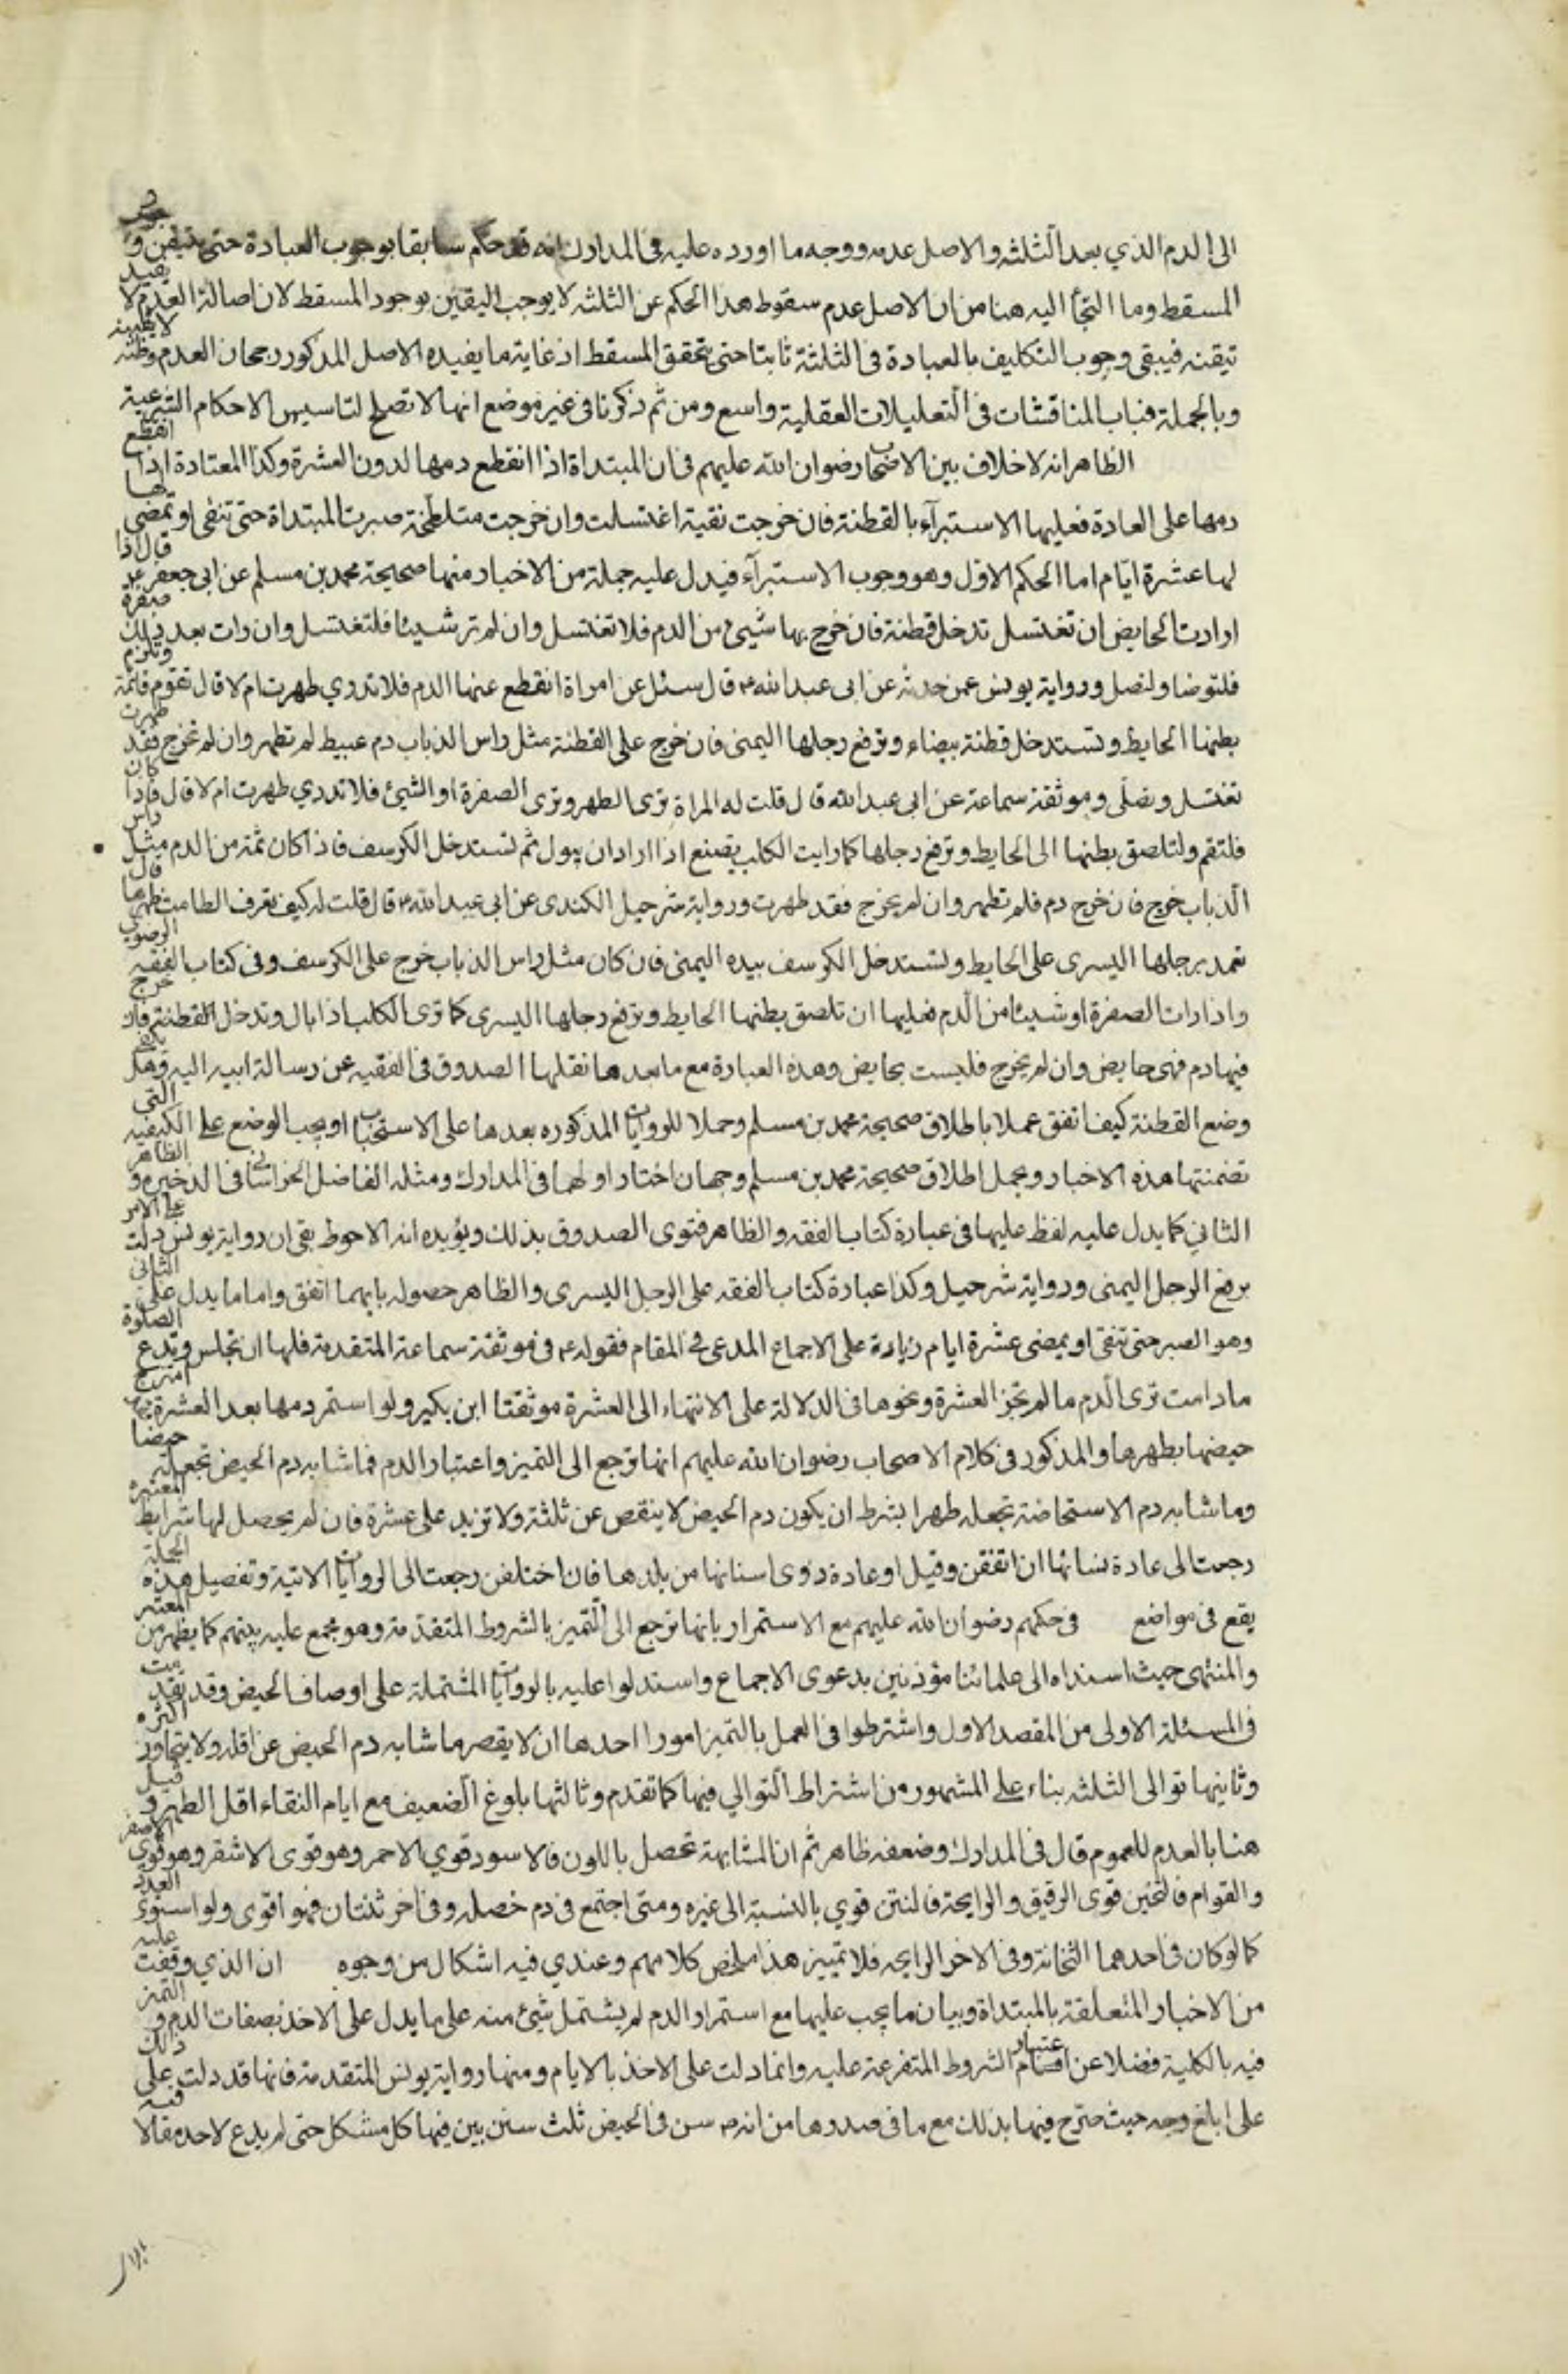 الى الدم الذي بعد الثلثه والاصل عدمه ووجه ما اورده عليه في المدارك انه قد حكم سابقا بوجوب العبادة حتى يتيقن وجود
المسقط وما التجأ اليه هنا من ان الاصل عدم سقوط هذا الحكم عن الثلثه لا يوجب اليقين بوجود المسقط لان اصالة العدم لا تفيد
تيقنه فيبقى وجوب التكليف بالعبادة في الثلثة ثابتا حتى يتحقق المسقط اذ غاية ما يفيده الاصل المذكور رجحان العدم وظنه لا يقينه
وبالجملة فباب المناقشات في التعليلات العقلية واسع ومن ثم ذكرنا في غير موضع انها لا تصلح لتاسيس الاحكام الشرعية
الظاهر انه لا خلاف بين الاصحاب رضوان الله عليهم في ان المبتداة اذا انقطع دمها لدون العشرة وكذا المعتادة اذا انقطع
دمها على العادة فعليها الاستبرآء بالقطنة فان خرجت نقية اغتسلت وان خرجت متلطخة صبرت المبتداة حتى تنقى او تمضى لها
لها عشرة ايام اما الحكم الاول وهو وجوب الاستبرآء فيدل عليه جملة من الاخبار منها صحيحة محمد بن مسلم عن ابى جعفر ع قال اذا
ارادت الحايض ان تغتسل تدخل قطنة فان خرج بها شيئ من الدم فلا تغتسل وان لم تر شيئا فلتغتسل وان رات بعد ذلك صفرة
فلتوضا ولتصل ورواية يونس عمن حدثه عن ابى عبد الله ع قال سئل عن امراة انقطع عنها الدم فلا تدري طهرت ام لا قال تقوم قائمة وتلزم
بطنها الحايط وتستدخل قطنة بيضاء وترفع رجلها اليمنى فان خرج على القطنة مثل راس الذباب دم عبيط لم تطهر وان لم تخرج فقد طهرت
تغتسل وتصلى وموثقة سماعة عن ابى عبد الله قال قلت له المراة ترى الطهر وترى الصفرة او الشيئ فلا تدري طهرت ام لا قال فاذا كان
فلتقم ولتلصق بطنها الى الحايط وترفع رجلها كما رايت الكلب يصنع اذا اراد ان يبول ثم تستدخل الكرسف فاذا كان ثمة من الدم مثل راس
الذباب خرج فان خرج دم فلم تطهر وان لم يخرج فقد طهرت ورواية شرحبيل الكندى عن ابى عبد الله ع قال قلت له كيف تعرف الطامث طهرها قال
تعمد برجلها اليسرى على الحايط وتستدخل الكرسف بيده اليمنى فان كان مثل راس الذباب خرج على الكرسف وفى كتاب الفقه الرضوي
واذا رات الصفرة او شيئا من الدم فعليها ان تلصق بطنها الحايط وترفع رجلها اليسرى كما ترى الكلب اذا بال وتدخل القطنة فان خرج
فيها دم فهى حايض وان لم يخرج فليست بحايض وهذه العبارة مع ما بعدها نقلها الصدوق في الفقيه عن رسالة ابيه اليه وهل يكفي
وضع القطنة كيف اتفق عملا باطلاق صحيحة محمد بن مسلم وحملا للروايات المذكوره بعدها على الاستحباب او يجب الوضع على الكيفيه التي
تضمنتها هذه الاخبار وبحمل اطلاق صحيحة محمد بن مسلم وجهان اختار اولهما في المدارك ومثله الفاضل الخراسانى في الذخيره والظاهر
الثاني كما يدل عليه لفظ عليها في عبارة كتاب الفقه والظاهر فتوى الصدوق بذلك ويؤيده انه الاحوط بقى ان رواية يونس دلت على الامر
برفع الرجل اليمنى ورواية شرحبيل وكذا عبارة كتاب الفقه على الرجل اليسرى والظاهر حصوله بايهما اتفق واما ما يدل على الثانى
وهو الصبر حتى تنقى او يمضى عشرة ايام زيادة على الاجماع المدعى في المقام فقوله ع في موثقة سماعة المتقدمة فلها ان تجلس وتدع الصلوة
ما دامت ترى الدم ما لم تجز العشرة ونحوها في الدلالة على الانتهاء الى العشرة موثقتا ابن بكير ولو استمر دمها بعد العشرة امتزج
حيضها بطهرها والمذكور في كلام الاصحاب رضوان الله عليهم انها ترجع الى التميز واعتبار الدم فما شابه دم الحيض تجعله حيضا
وما شابه دم الاستحاضة تجعله طهرا بشرط ان يكون دم الحيض لا ينقص عن ثلثة ولا تزيد على عشرة فان لم يحصل لها شرايط المعتبره
رجعت الى عادة نسائها ان اتفقن وقيل او عادة ذوى اسنانها من بلدها فان اختلفن رجعت الى الروايات الاتية وتفصيل هذه الجملة
يقع في مواضع في حكمهم رضوان الله عليهم مع الاستمرار بانها ترجع الى التميز بالشروط المتقدمة وهو مجمع عليه بينهم كما يظهر من المعتبر
والمنتهى حيث اسنداه الى علمائنا مؤذنين بدعوى الاجماع واستدلوا عليه بالروايات المشتملة على اوصاف الحيض وقد تقدمت
في المسئلة الاولى من المقصد الاول واشترطوا في العمل بالتميز امورا احدها ان لا يقصر ما شابه دم الحيض عن اقله ولا يتجاوز اكثره
وثانيها توالى الثلثه بناء على المشهور من اشتراط التوالي فيها كما تقدم وثالثها بلوغ الضعيف مع ايام النقاء اقل الطهر وقيل
هنا بالعدم للعموم قال في المدارك وضعفه ظاهر ثم ان المشابهة تحصل باللون فالاسود قوي الاحمر وهو قوى الاشقر وهو قوي الاصفر
والقوام فالثخين قوى الرقيق والرايحة فالنتن قوي بالنسبة الى غيره ومتى اجتمع في دم خصلة وفى اخر ثنتان فهو اقوى ولو استوى العدد
كما لو كان في احدهما الثخانة وفى الاخر الرايحه فلا تمييز هذا ملخص كلامهم وعندي فيه اشكال من وجوه ان الذي وقفت عليه
من الاخبار المتعلقة بالمبتداة وبيان ما يجب عليها مع استمرار الدم لم يشتمل شيئ منه على ما يدل على الاخذ بصفات الدم والتميز
فيه بالكلية فضلا عن اعتبار اقسام الشروط المتفرعة عليه وانما دلت على الاخذ بالايام ومنها رواية يونس المتقدمة فانها قد دلت على ذلك
على ابلغ وجه حيث صرح فيها بذلك مع ما في صدرها من انه ص سن في الحيض ثلث سنن بين فيها كل مشكل حتى لم يدع لاحد مقالا فيه